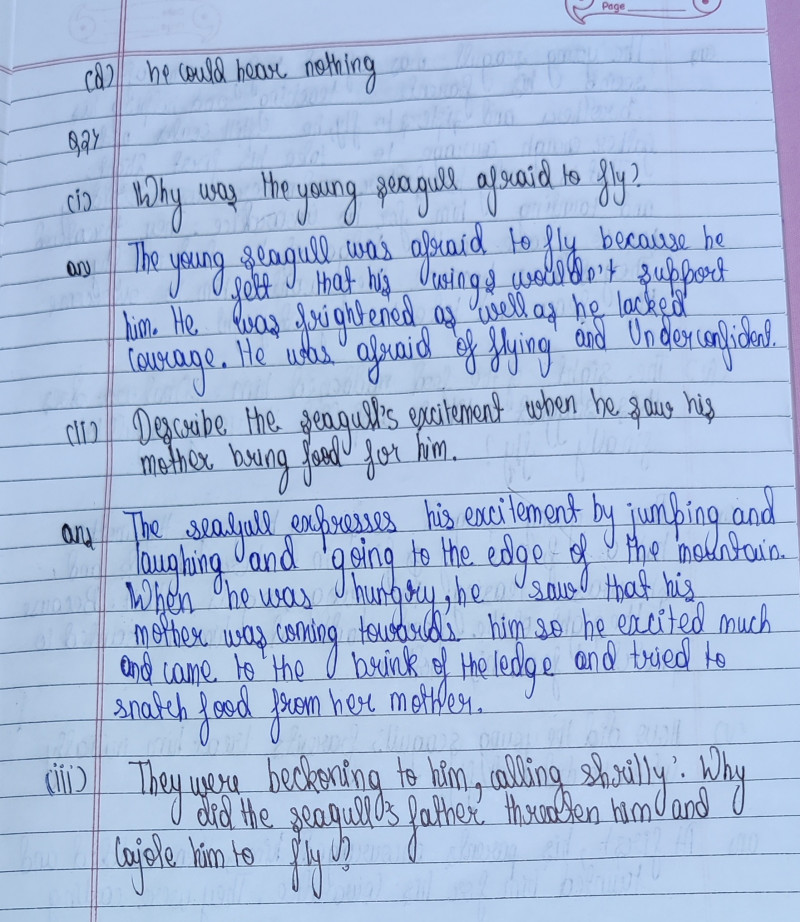 Page
(d) he could hear nothing
Q2Y
(i) Why was the young seagull afraid to fly?
ans The young seagull was afraid to fly because he
felt that his wings wouldn't support
him. He was frightened as well as he lacked
courage. He was afraid of flying and Underconfident.
(ii) Describe the seagull's excitement when he saw his
mother bring food for him.
ans The seagull expresses his excitement by jumping and
laughing and going to the edge of the mountain.
When he was hungry, he saw that his
mother was coming towards him so he excited much
and came to the brink of the ledge and tried to
snatch food from her mother.
(iii) They were beckoning to him, calling shrilly'. Why
did the seagull's father threaten him and
cajole him to fly?